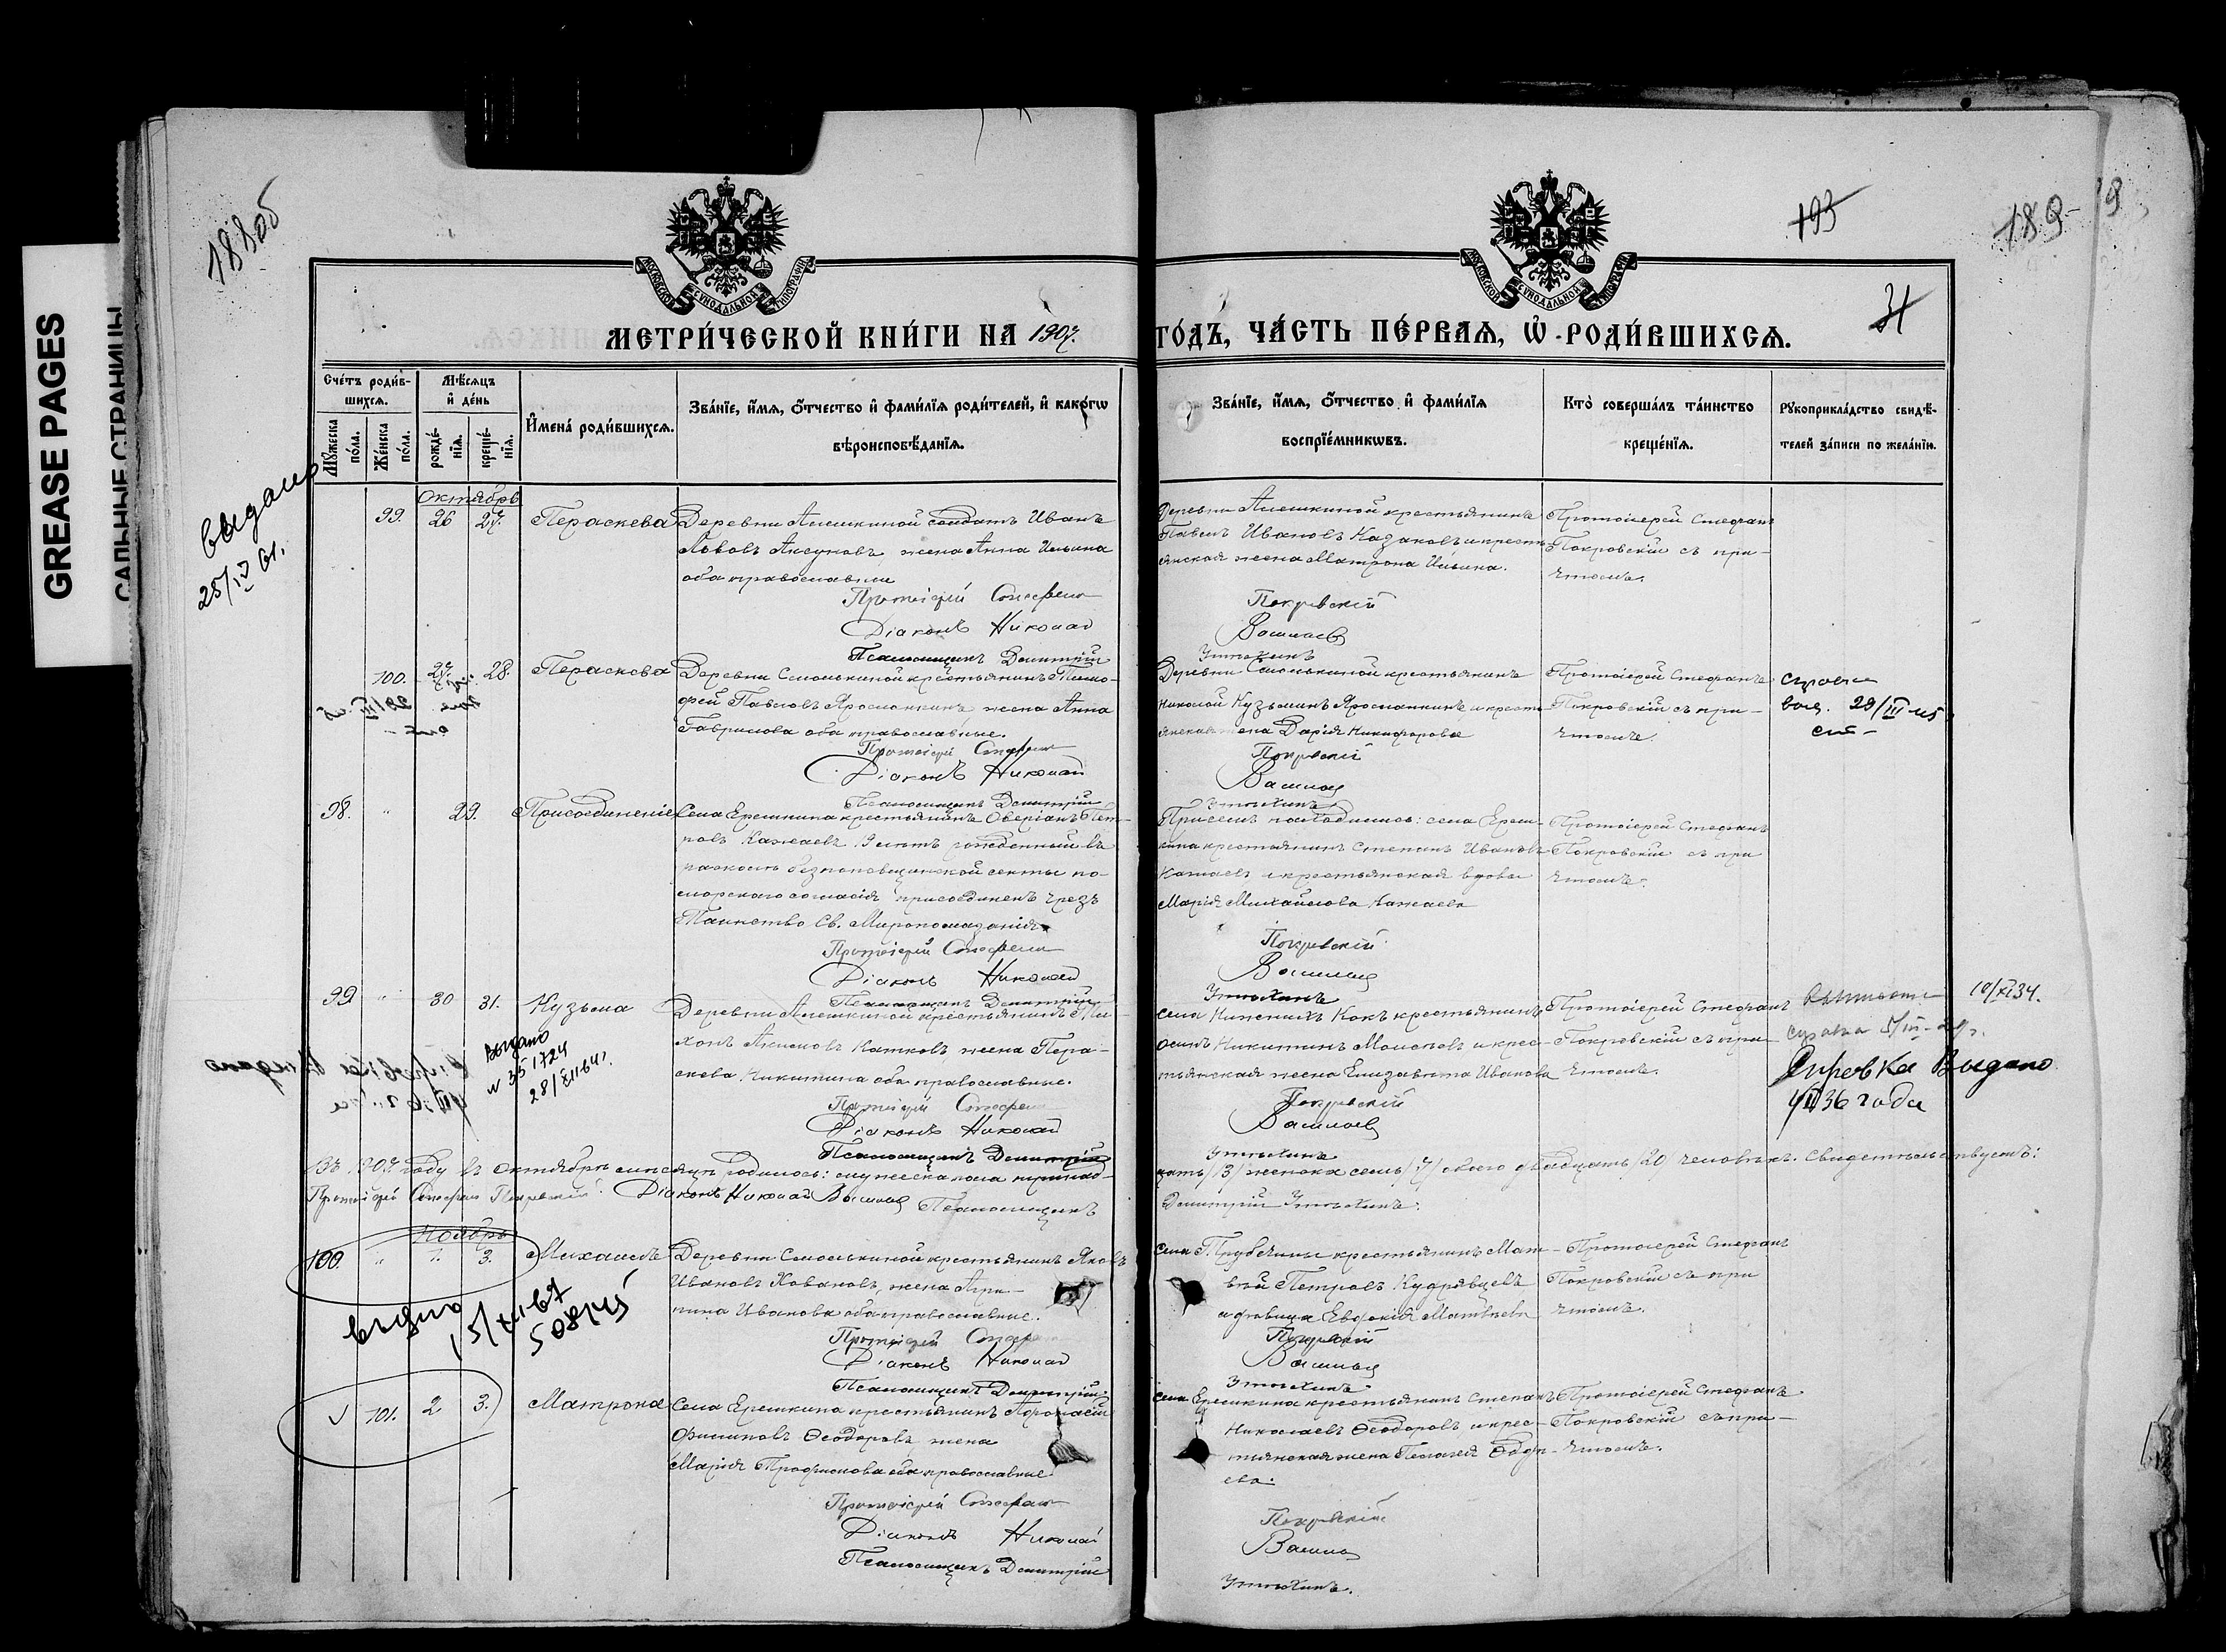 GREASE PAGES
САЛЬНЫЕ СТРАНИЦЫ
188об
193
189
9
31
МОСКОВСКОЙ СѴНОДАЛЬНОЙ ТИПОГРАФІИ
МОСКОВСКОЙ СѴНОДАЛЬНОЙ ТИПОГРАФІИ
МЕТРИ́ЧЕСКОЙ КНИ́ГИ НА 1907.
ГО́ДЪ, ЧА́СТЬ ПЕ́РВАѦ, Ѡ҆ РОДИ́ВШИХСѦ.
Сче́тъ роди́в-
шихсѧ.
Мѣ́сѧцъ
и҆ де́нь
Мꙋ́жеска
по́ла.
Же́нска
по́ла.
рожде́-
нїѧ.
креще́-
нїѧ.
И҆мена̀ роди́вшихсѧ.
Зва́нїе, и҆́мѧ, ѻ҆́тчество и҆ фами́лїѧ роди́телей, и҆ како́гѡ
вѣроисповѣ́данїѧ.
Зва́нїе, и҆́мѧ, ѻ҆́тчество и҆ фами́лїѧ
воспрїе́мникѡвъ.
Кто̀ соверша́лъ та́инство
креще́нїѧ.
Рꙋкоприкла́дство свидѣ́-
телей за́писи по жела́нїю.
выдано
25/IV 61.
Октябрь
99. 26 27. Пераскева
Деревни Алешкиной солдатъ Иванъ
Львовъ Аксуновъ жена Анна Ильина
оба православные
Протоіерей Стефанъ
Діаконъ Николай
Псаломщикъ Димитрій
Деревни Алешкиной крестьянинъ
Павелъ Ивановъ Казаковъ и кресть-
янская жена Матрона Ильина.
Покровскій
Васильевъ
Утѣхинъ
Протоіерей Стефанъ
Покровскій съ при-
чтомъ.
100. 27. 28. Пераскева
Деревни Смолькиной крестьянинъ Тимо-
фей Павловъ Ярославкинъ жена Анна
Гаврилова оба православные.
Протоіерей Стефанъ
Діаконъ Николай
Псаломщикъ Димитрій
Деревни Смолькиной крестьянинъ
Николай Кузьминъ Ярославкинъ и кресть-
янская жена Дарія Никифорова
Покровскій
Васильевъ
Утѣхинъ
Протоіерей Стефанъ
Покровскій съ при-
чтомъ.
29/III
98. " 29. Присоединеніе
Села Ерешкина крестьянинъ Оверіанъ Пет-
ровъ Кажаевъ 9 лѣтъ рожденный въ
расколѣ безпоповщинской секты по-
морскаго согласія присоединенъ чрезъ
Таинство Св. Мѵропомазанія
Протоіерей Стефанъ
Діаконъ Николай
Псаломщикъ Димитрій
При семъ находились: села Ереш-
кина крестьянинъ Степанъ Ивановъ
Кажаевъ и крестьянская вдова
Марія Михайлова Кажаева
Покровскій
Васильевъ
Утѣхинъ
Протоіерей Стефанъ
Покровскій съ при
чтомъ.
99 " 30 31. Кузьма
Деревни Алешкиной крестьянинъ Ти-
хонъ Акимовъ Катковъ жена Пера-
скева Никитина оба православные.
Протоіерей Стефанъ
Діаконъ Николай
Псаломщикъ Димитрій
Села Нижнихъ Кокъ крестьянинъ
Осипъ Никитинъ Моисеевъ и крес-
тьянская жена Елизавета Иванова
Покровскій
Васильевъ
Утѣхинъ
Протоіерей Стефанъ
Покровскій съ при-
чтомъ.
10/XI 34.
Справка Выдано
36 года
Выдано
N 351724
Въ 1907 году въ октябрѣ мѣсяцѣ родилось: мужеска пола тринад-
цать /13/ женска семь /7/ обоего двадцать /20/ человѣкъ. Свидетельствуетъ:
Протоіерей Стефанъ Покровскій. Діаконъ Николай Васильевъ Псаломщикъ
Димитрій Утѣхинъ.
Ноябрь
100. " 1. 3. Михаилъ
Деревни Смолькиной крестьянинъ Яковъ
Ивановъ Ховановъ, жена Агри-
пина Ивановна оба православные.
Протоіерей Стефанъ
Діаконъ Николай
Псаломщикъ Димитрій
Села Трубетчины крестьянинъ Мат-
вѣй Петровъ Кудрявцевъ
и дѣвица Евдокія Матвѣева
Покровскій
Васильевъ
Утѣхинъ
Протоіерей Стефанъ
Покровскій съ при
чтомъ.
выдано
15/XII 67
101. 2 3. Матрона
Села Ерешкина крестьянинъ Афанасій
Филиповъ Ѳеодоровъ жена
Марія Трофимова оба православные
Протоіерей Стефанъ
Діаконъ Николай
Псаломщикъ Димитрій
Села Ерешкина крестьянинъ Степанъ
Николаевъ Ѳеодоровъ и крес-
тьянская жена Пелагея
ева.
Покровскій
Васильевъ
Утѣхинъ.
Протоіерей Стефанъ
Покровскій съ при-
чтомъ.